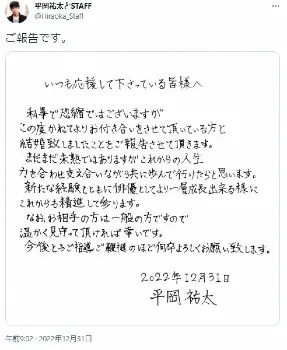 平岡祐太とSTAFF
@Hiraoka_Staff
ご報告です。
いつも応援して下さっている皆様へ
私事で恐縮ではございますが
この度かねてよりお付き合いをさせて頂いている方と
結婚致しましたことをご報告させて頂きます。
まだまだ未熟ではありますがこれからの人生
力を合わせ支え合いながら共に歩んで行けたらと思います。
新たな経験とともに俳優としてより一層成長出来る様に
これからも精進して参ります。
なお、お相手の方は一般の方ですので
温かく見守って頂ければ幸いです。
今後ともご指導ご鞭撻のほど何卒よろしくお願い致します。
2022年12月31日
平岡 祐太
午前9:02 · 2022年12月31日